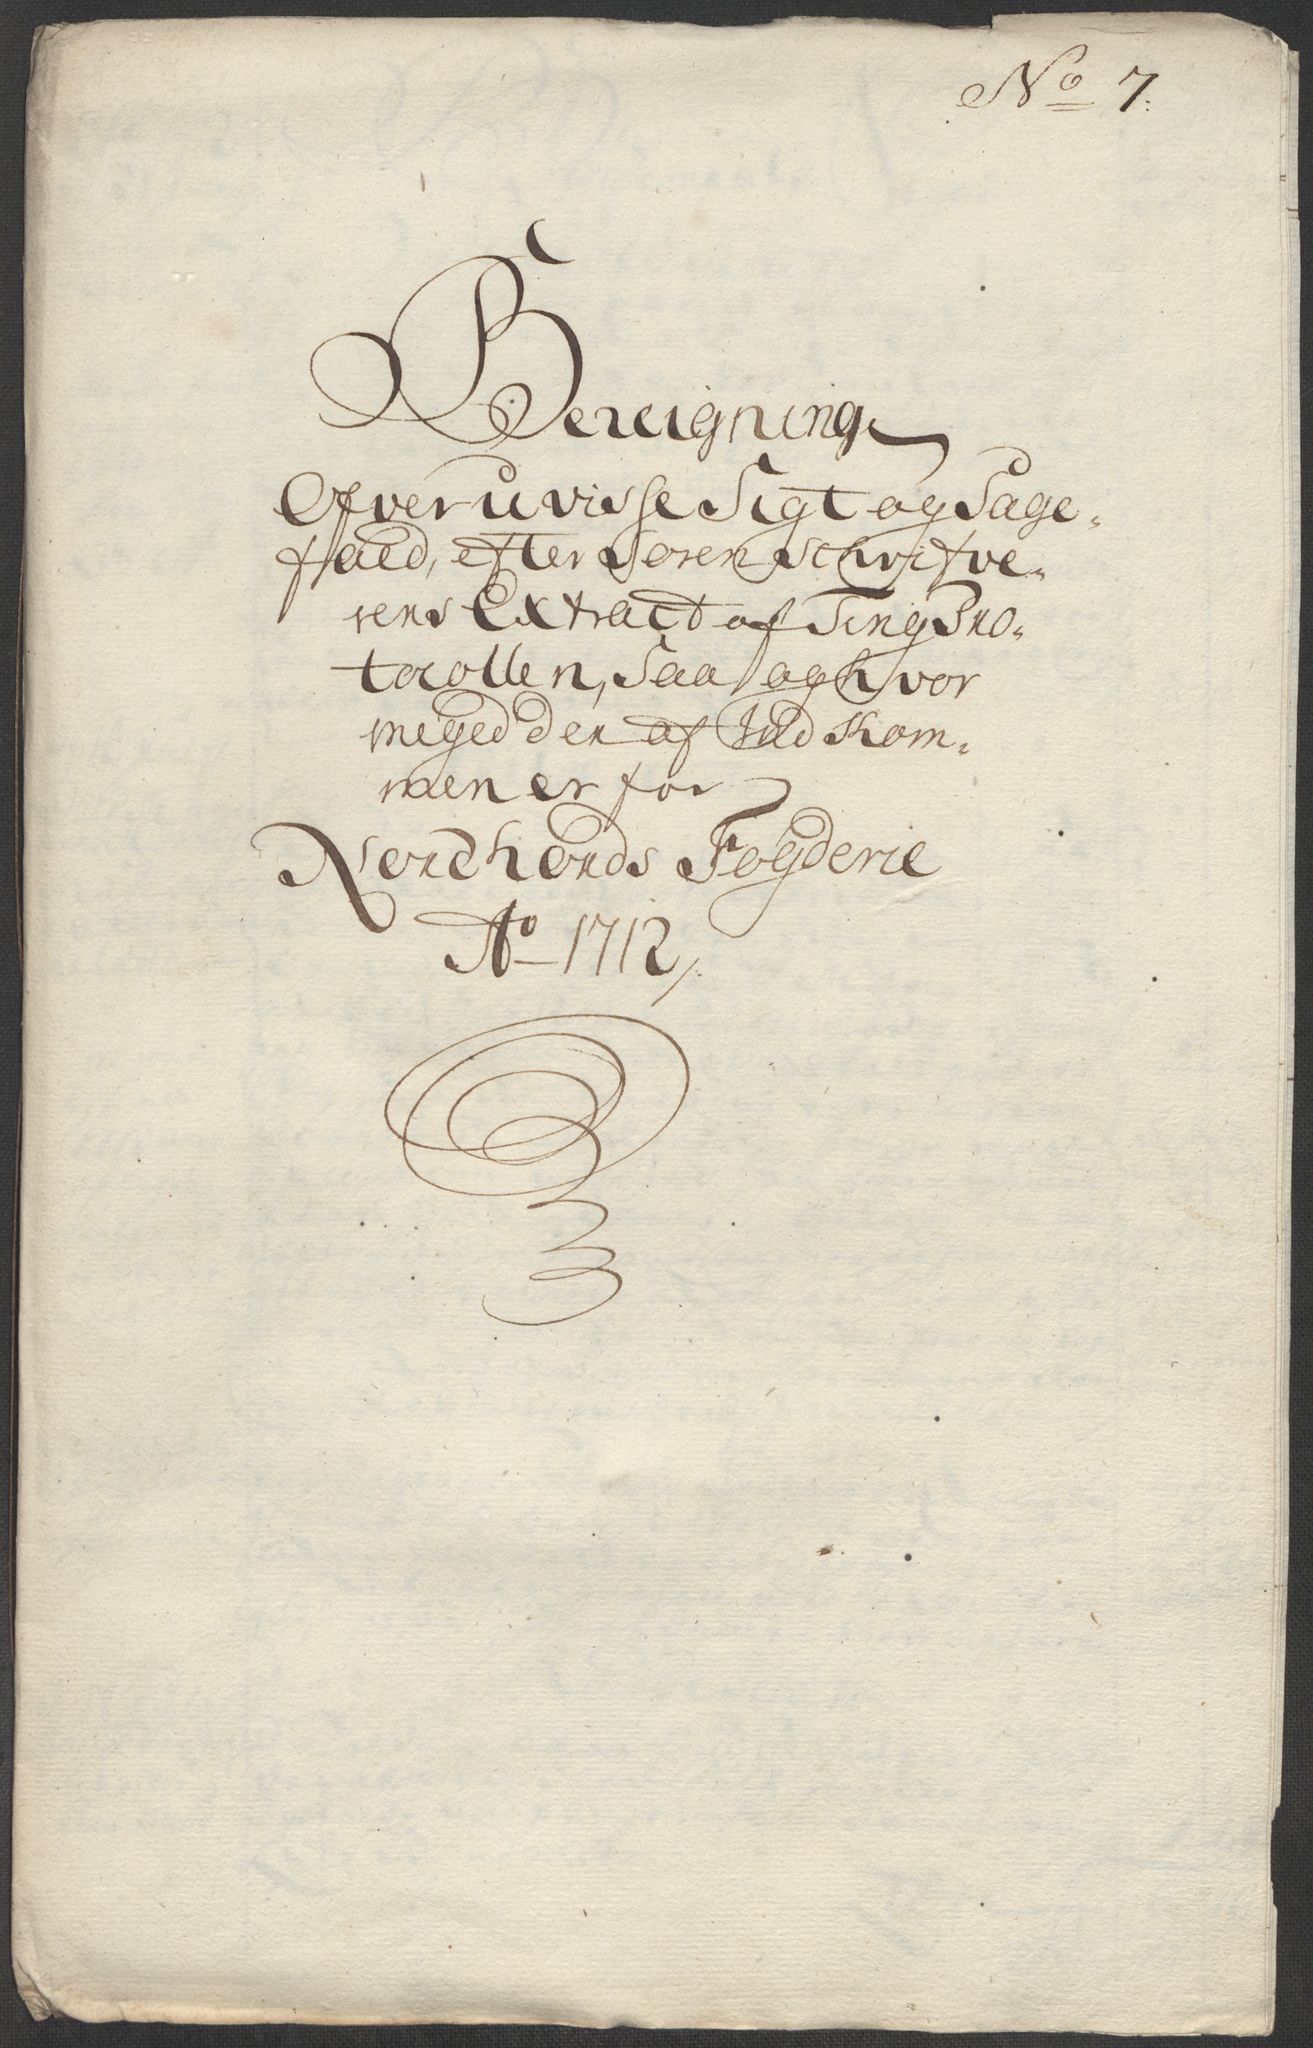 No 7.
Bereigning
Ofver uvisse Sigt og Sage-
fald, efter Sorenschrifve-
rens Extract af Ting Pro-
tocollen, Saa og hvor
meged der af Ind Kom-
men er for
Nordhords Fogderie
Ao 1712